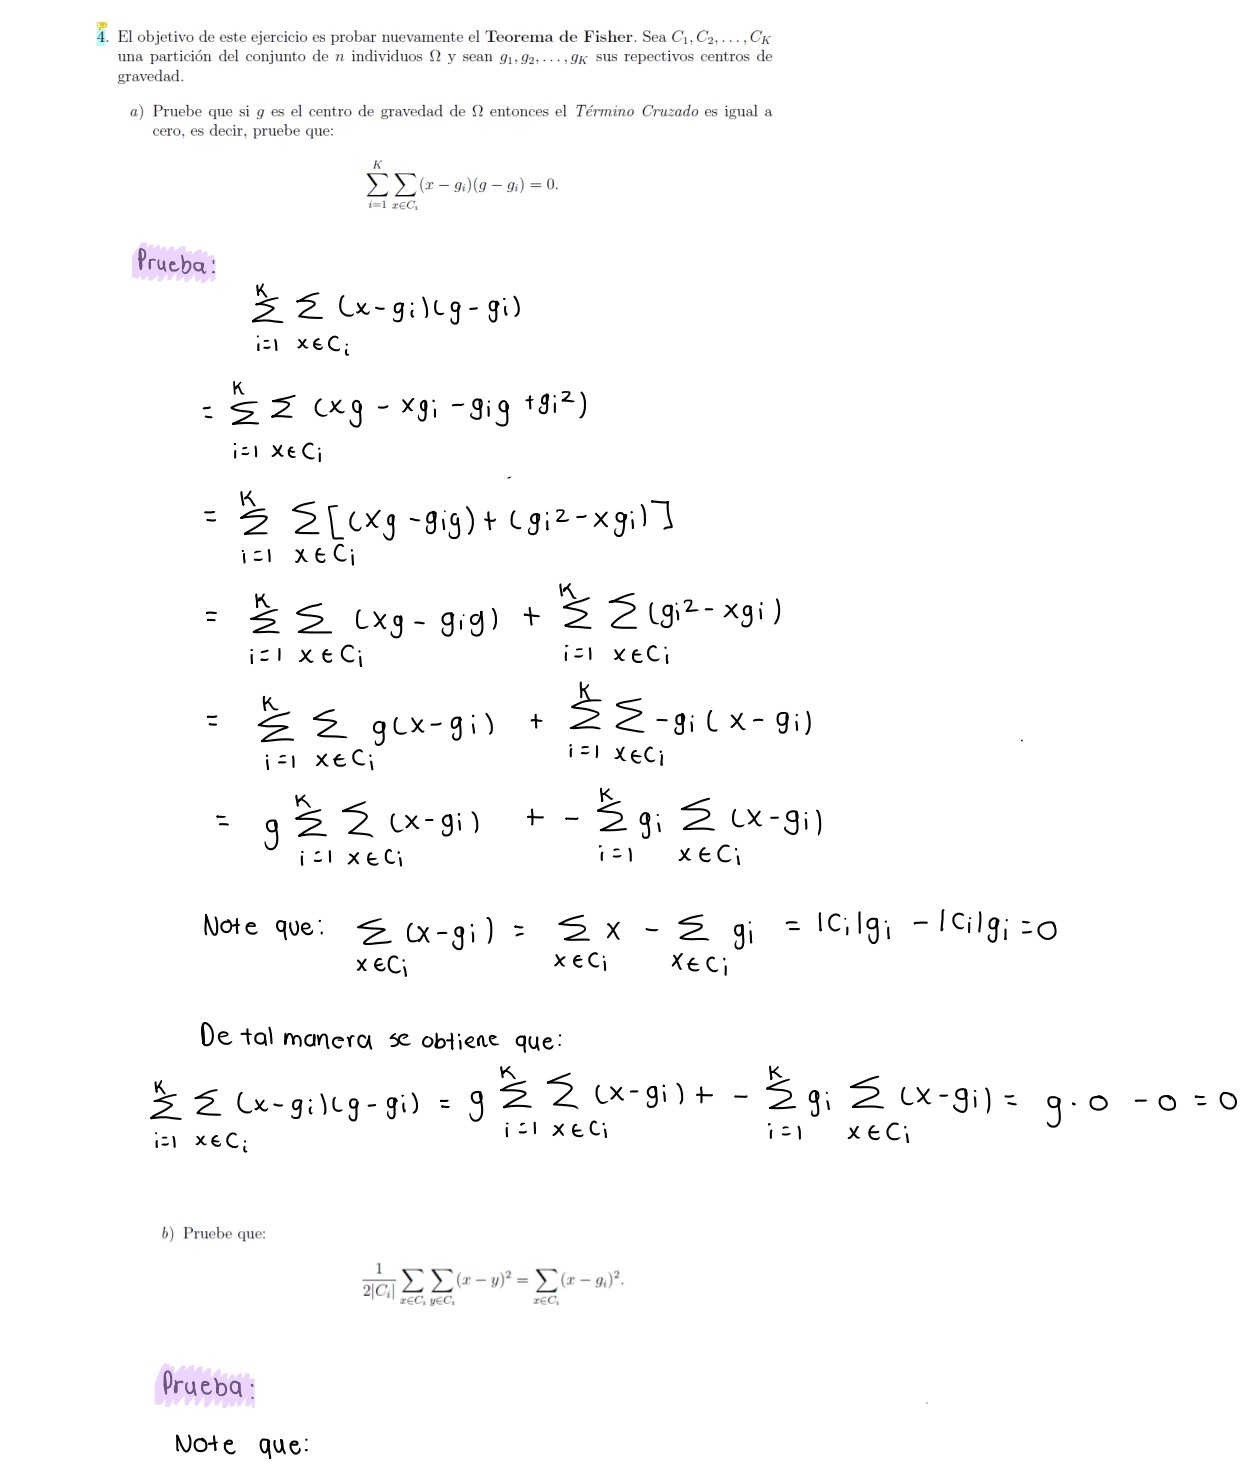 4. El objetivo de este ejercicio es probar nuevamente el Teorema de Fisher. Sea C₁, C₂, . . . , C_K
una partición del conjunto de n individuos Ω y sean g₁, g₂, . . . , g_K sus repectivos centros de
gravedad.
a) Pruebe que si g es el centro de gravedad de Ω entonces el Término Cruzado es igual a
cero, es decir, pruebe que:
∑_{i=1}^{K} ∑_{x∈C_i} (x − g_i)(g − g_i) = 0.
Prueba:
∑_{i=1}^{K} ∑_{x∈C_i} (x - g_i)(g - g_i)
= ∑_{i=1}^{K} ∑_{x∈C_i} (xg - xg_i - g_i g + g_i²)
= ∑_{i=1}^{K} ∑_{x∈C_i} [(xg - g_i g) + (g_i² - xg_i)]
= ∑_{i=1}^{K} ∑_{x∈C_i} (xg - g_i g) + ∑_{i=1}^{K} ∑_{x∈C_i} (g_i² - xg_i)
= ∑_{i=1}^{K} ∑_{x∈C_i} g(x - g_i) + ∑_{i=1}^{K} ∑_{x∈C_i} -g_i(x - g_i)
= g ∑_{i=1}^{K} ∑_{x∈C_i} (x - g_i) + - ∑_{i=1}^{K} g_i ∑_{x∈C_i} (x - g_i)
Note que: ∑_{x∈C_i} (x - g_i) = ∑_{x∈C_i} x - ∑_{x∈C_i} g_i = |C_i|g_i - |C_i|g_i = 0
De tal manera se obtiene que:
∑_{i=1}^{K} ∑_{x∈C_i} (x - g_i)(g - g_i) = g ∑_{i=1}^{K} ∑_{x∈C_i} (x - g_i) + - ∑_{i=1}^{K} g_i ∑_{x∈C_i} (x - g_i) = g · 0 - 0 = 0
b) Pruebe que:
1/(2|C_i|) ∑_{x∈C_i} ∑_{y∈C_i} (x − y)² = ∑_{x∈C_i} (x − g_i)².
Prueba:
Note que: